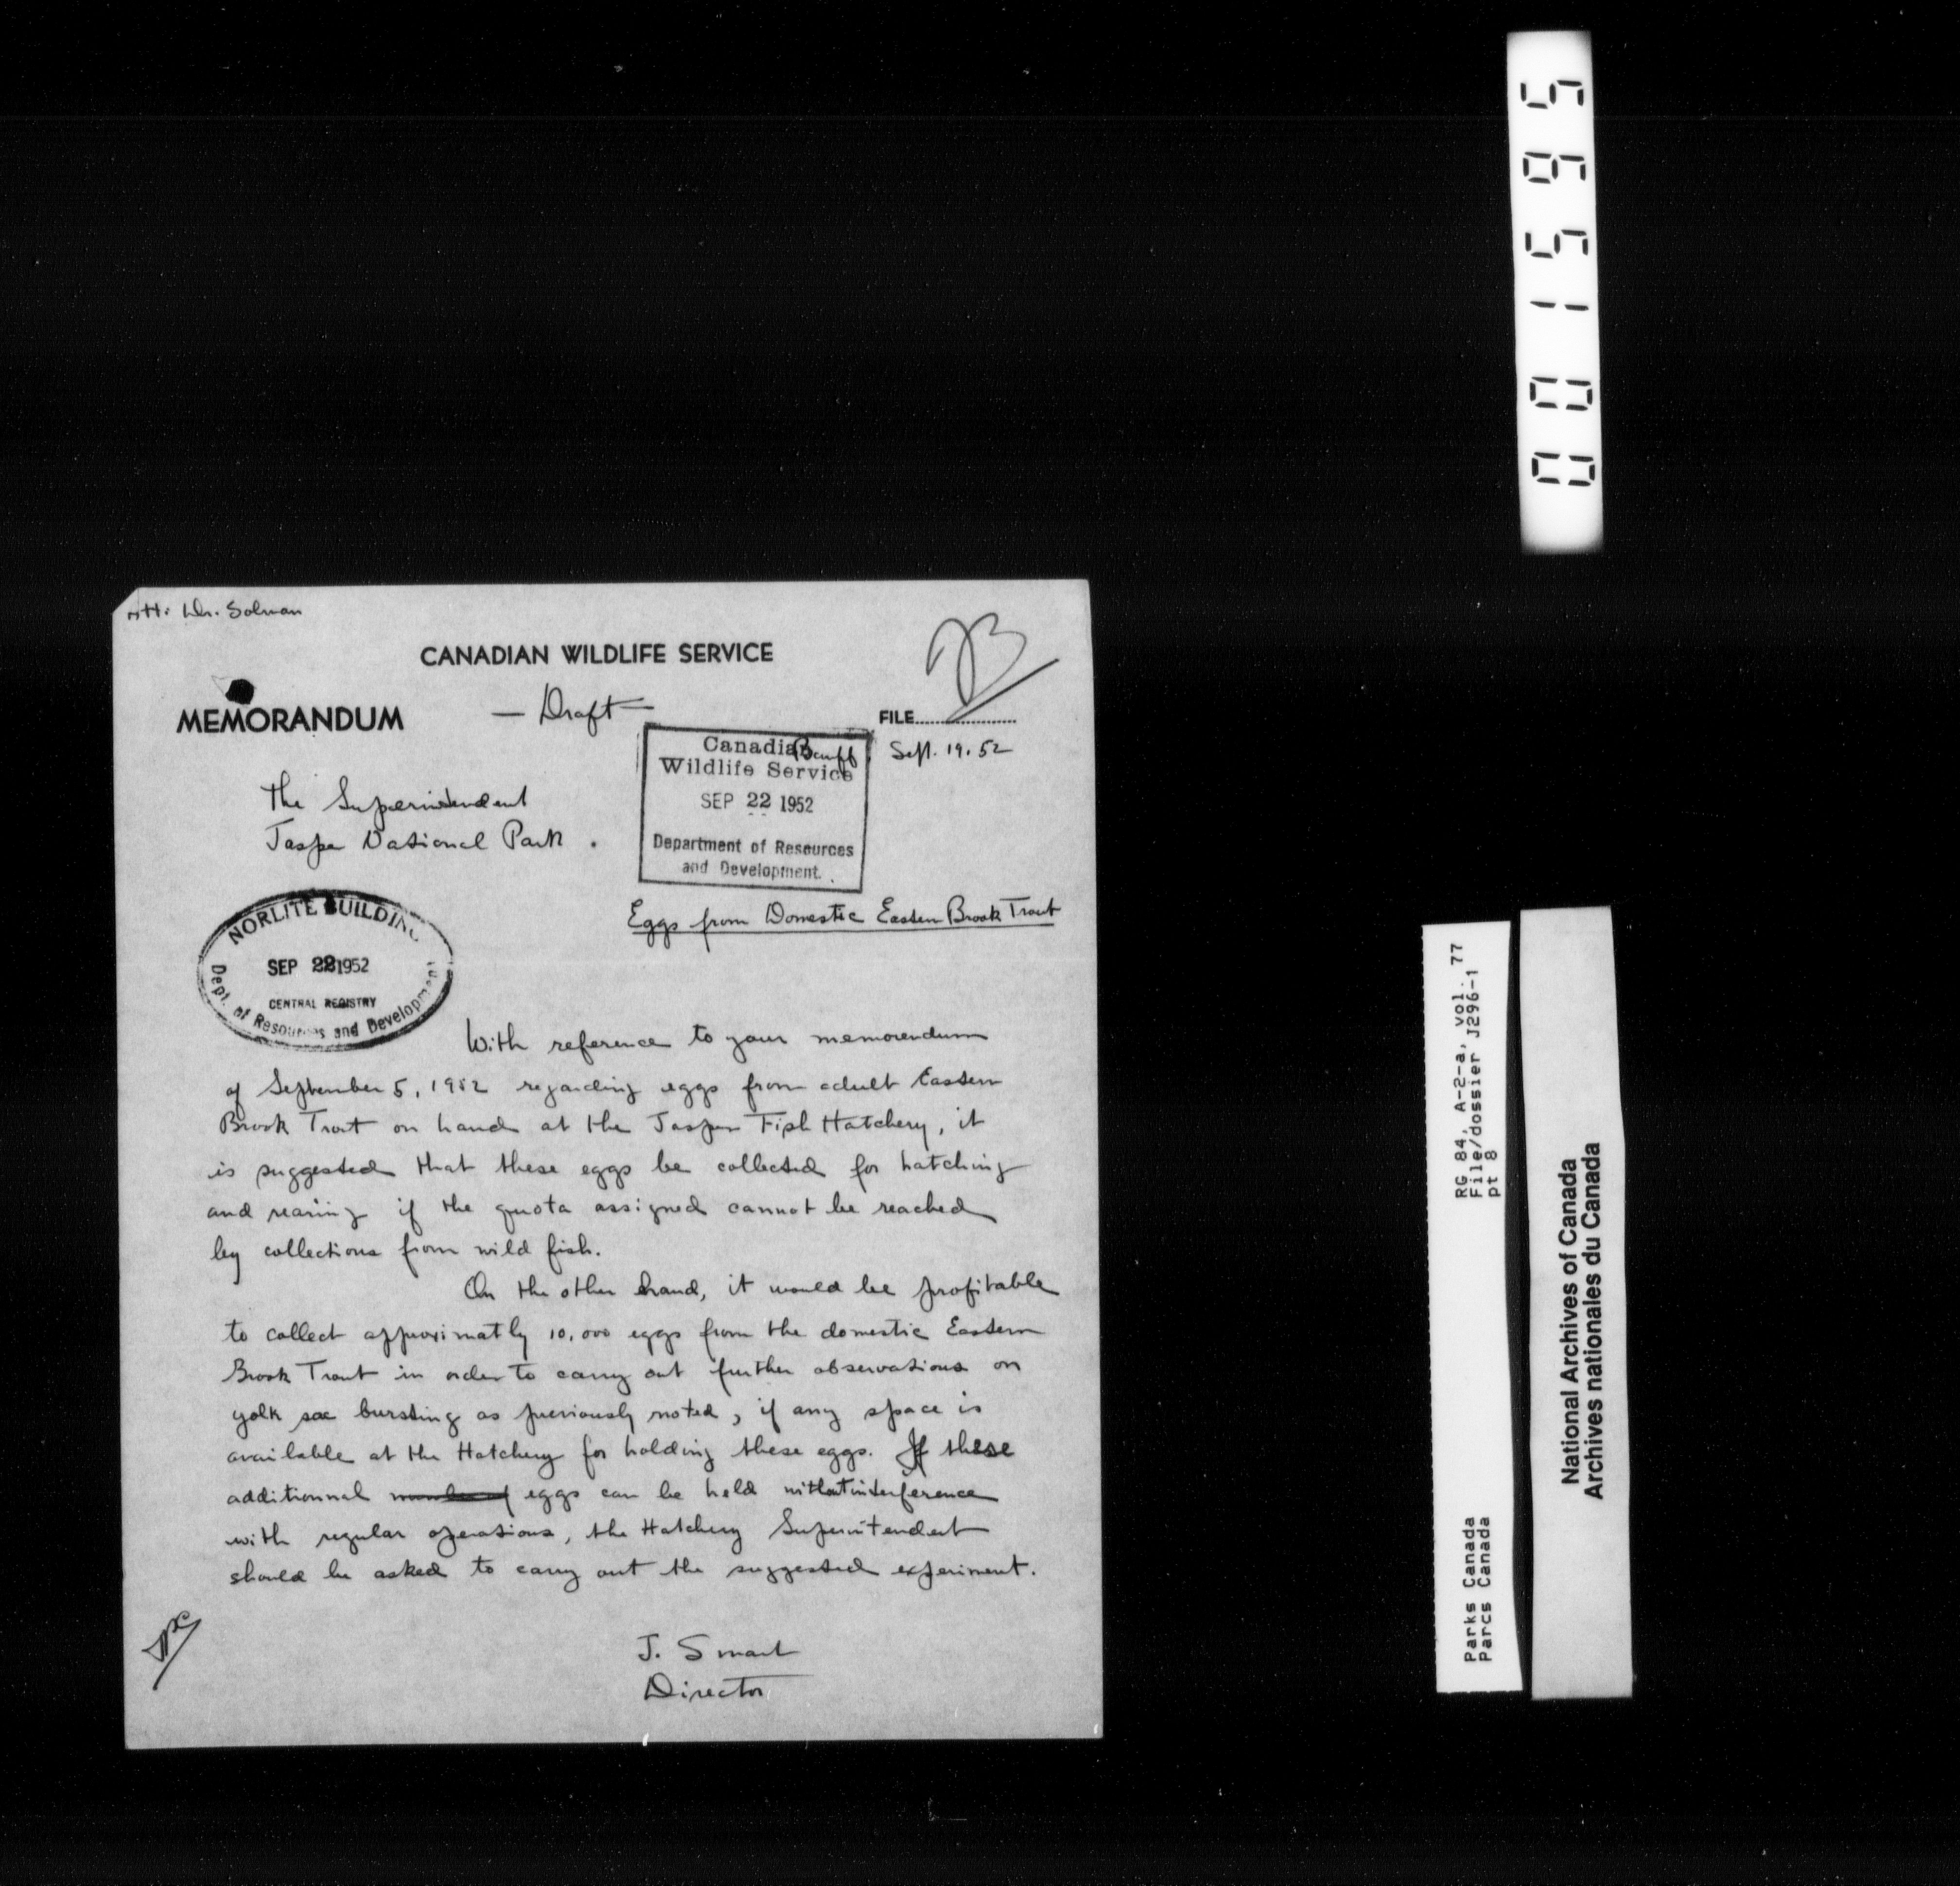 Att: Dr. Solman
CANADIAN WILDLIFE SERVICE
MEMORANDUM
— Draft —
FILE
Banff, Sept. 19. 52
Canadian
Wildlife Service
SEP 22 1952
Department of Resources
and Development.
The Superintendent
Jasper National Park.
Eggs from Domestic Eastern Brook Trout
NORLITE BUILDING
SEP 22 1952
CENTRAL REGISTRY
Dept. of Resources and Development
With reference to your memorandum
of September 5, 1952 regarding eggs from adult Eastern
Brook Trout on hand at the Jasper Fish Hatchery, it
is suggested that these eggs be collected for hatching
and rearing if the quota assigned cannot be reached
by collections from wild fish.
On the other hand, it would be profitable
to collect approximatly 10,000 eggs from the domestic Eastern
Brook Trout in order to carry out further observations on
yolk sac bursting as previously noted, if any space is
available at the Hatchery for holding these eggs. If these
additionnal number of eggs can be held without interference
with regular operations, the Hatchery Superintendent
should be asked to carry out the suggested experiment.
J. Smart
Director
0015195
RG 84, A-2-a, vol. 77
File/dossier J296-1
pt 8
Parks Canada
Parcs Canada
National Archives of Canada
Archives nationales du Canada